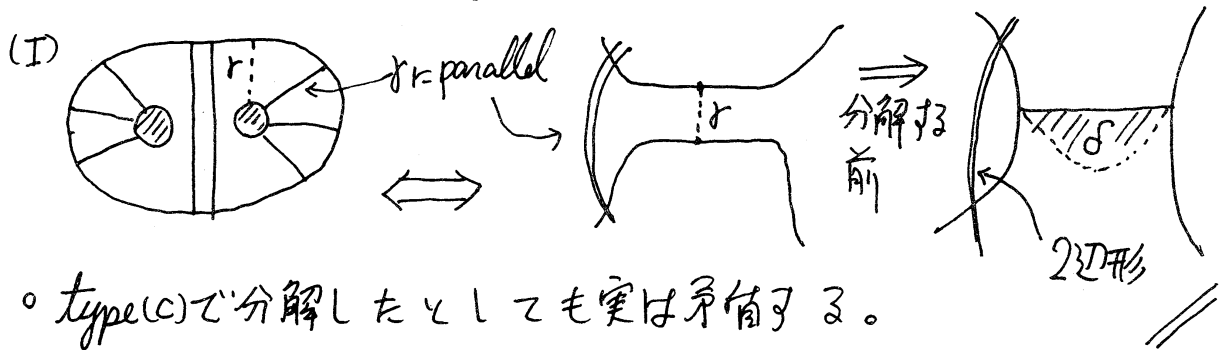 (I)
γ
γに parallel
γ
分解する
前
δ
2辺形
○ type(c)で分解したとしても実は矛盾する。